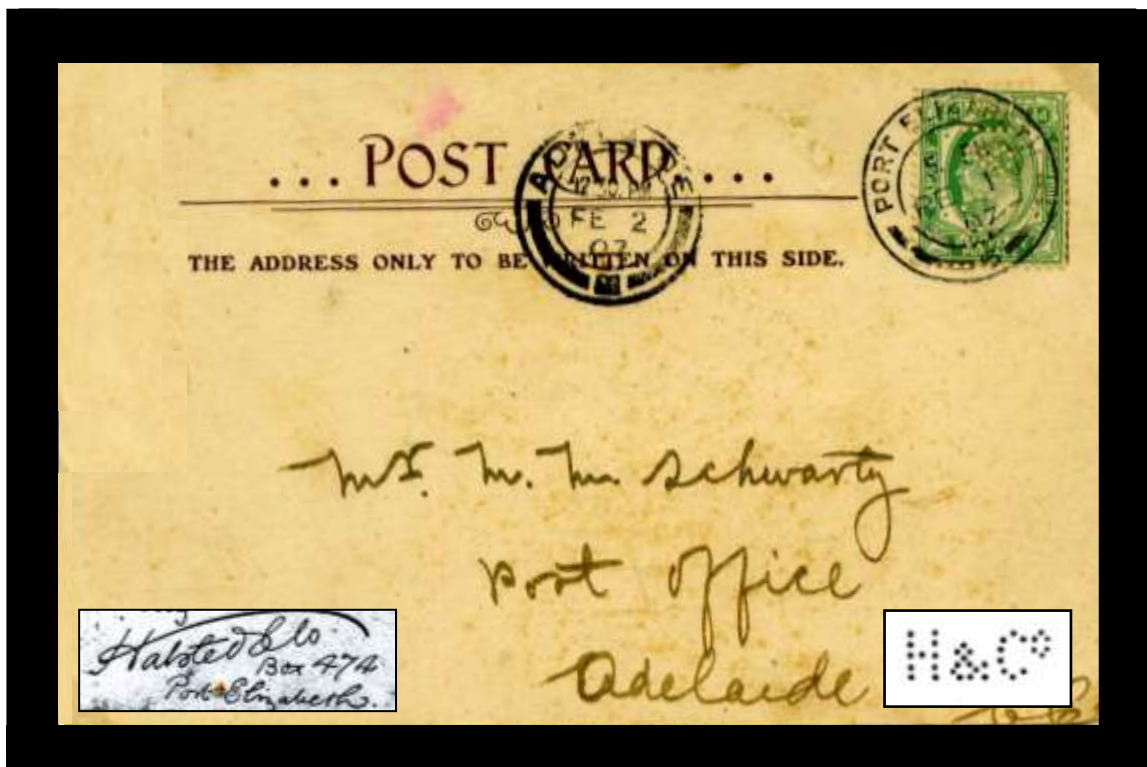 ... POST CARD ...
THE ADDRESS ONLY TO BE WRITTEN ON THIS SIDE.
ADELAIDE
12.30. PM
FE 2
07
PORT ELIZABETH
FE 1
07
Mr. M. M. Schwartz
Post Office
Adelaide
Halsted & Co
Box 474
Port Elizabeth.
H&Co